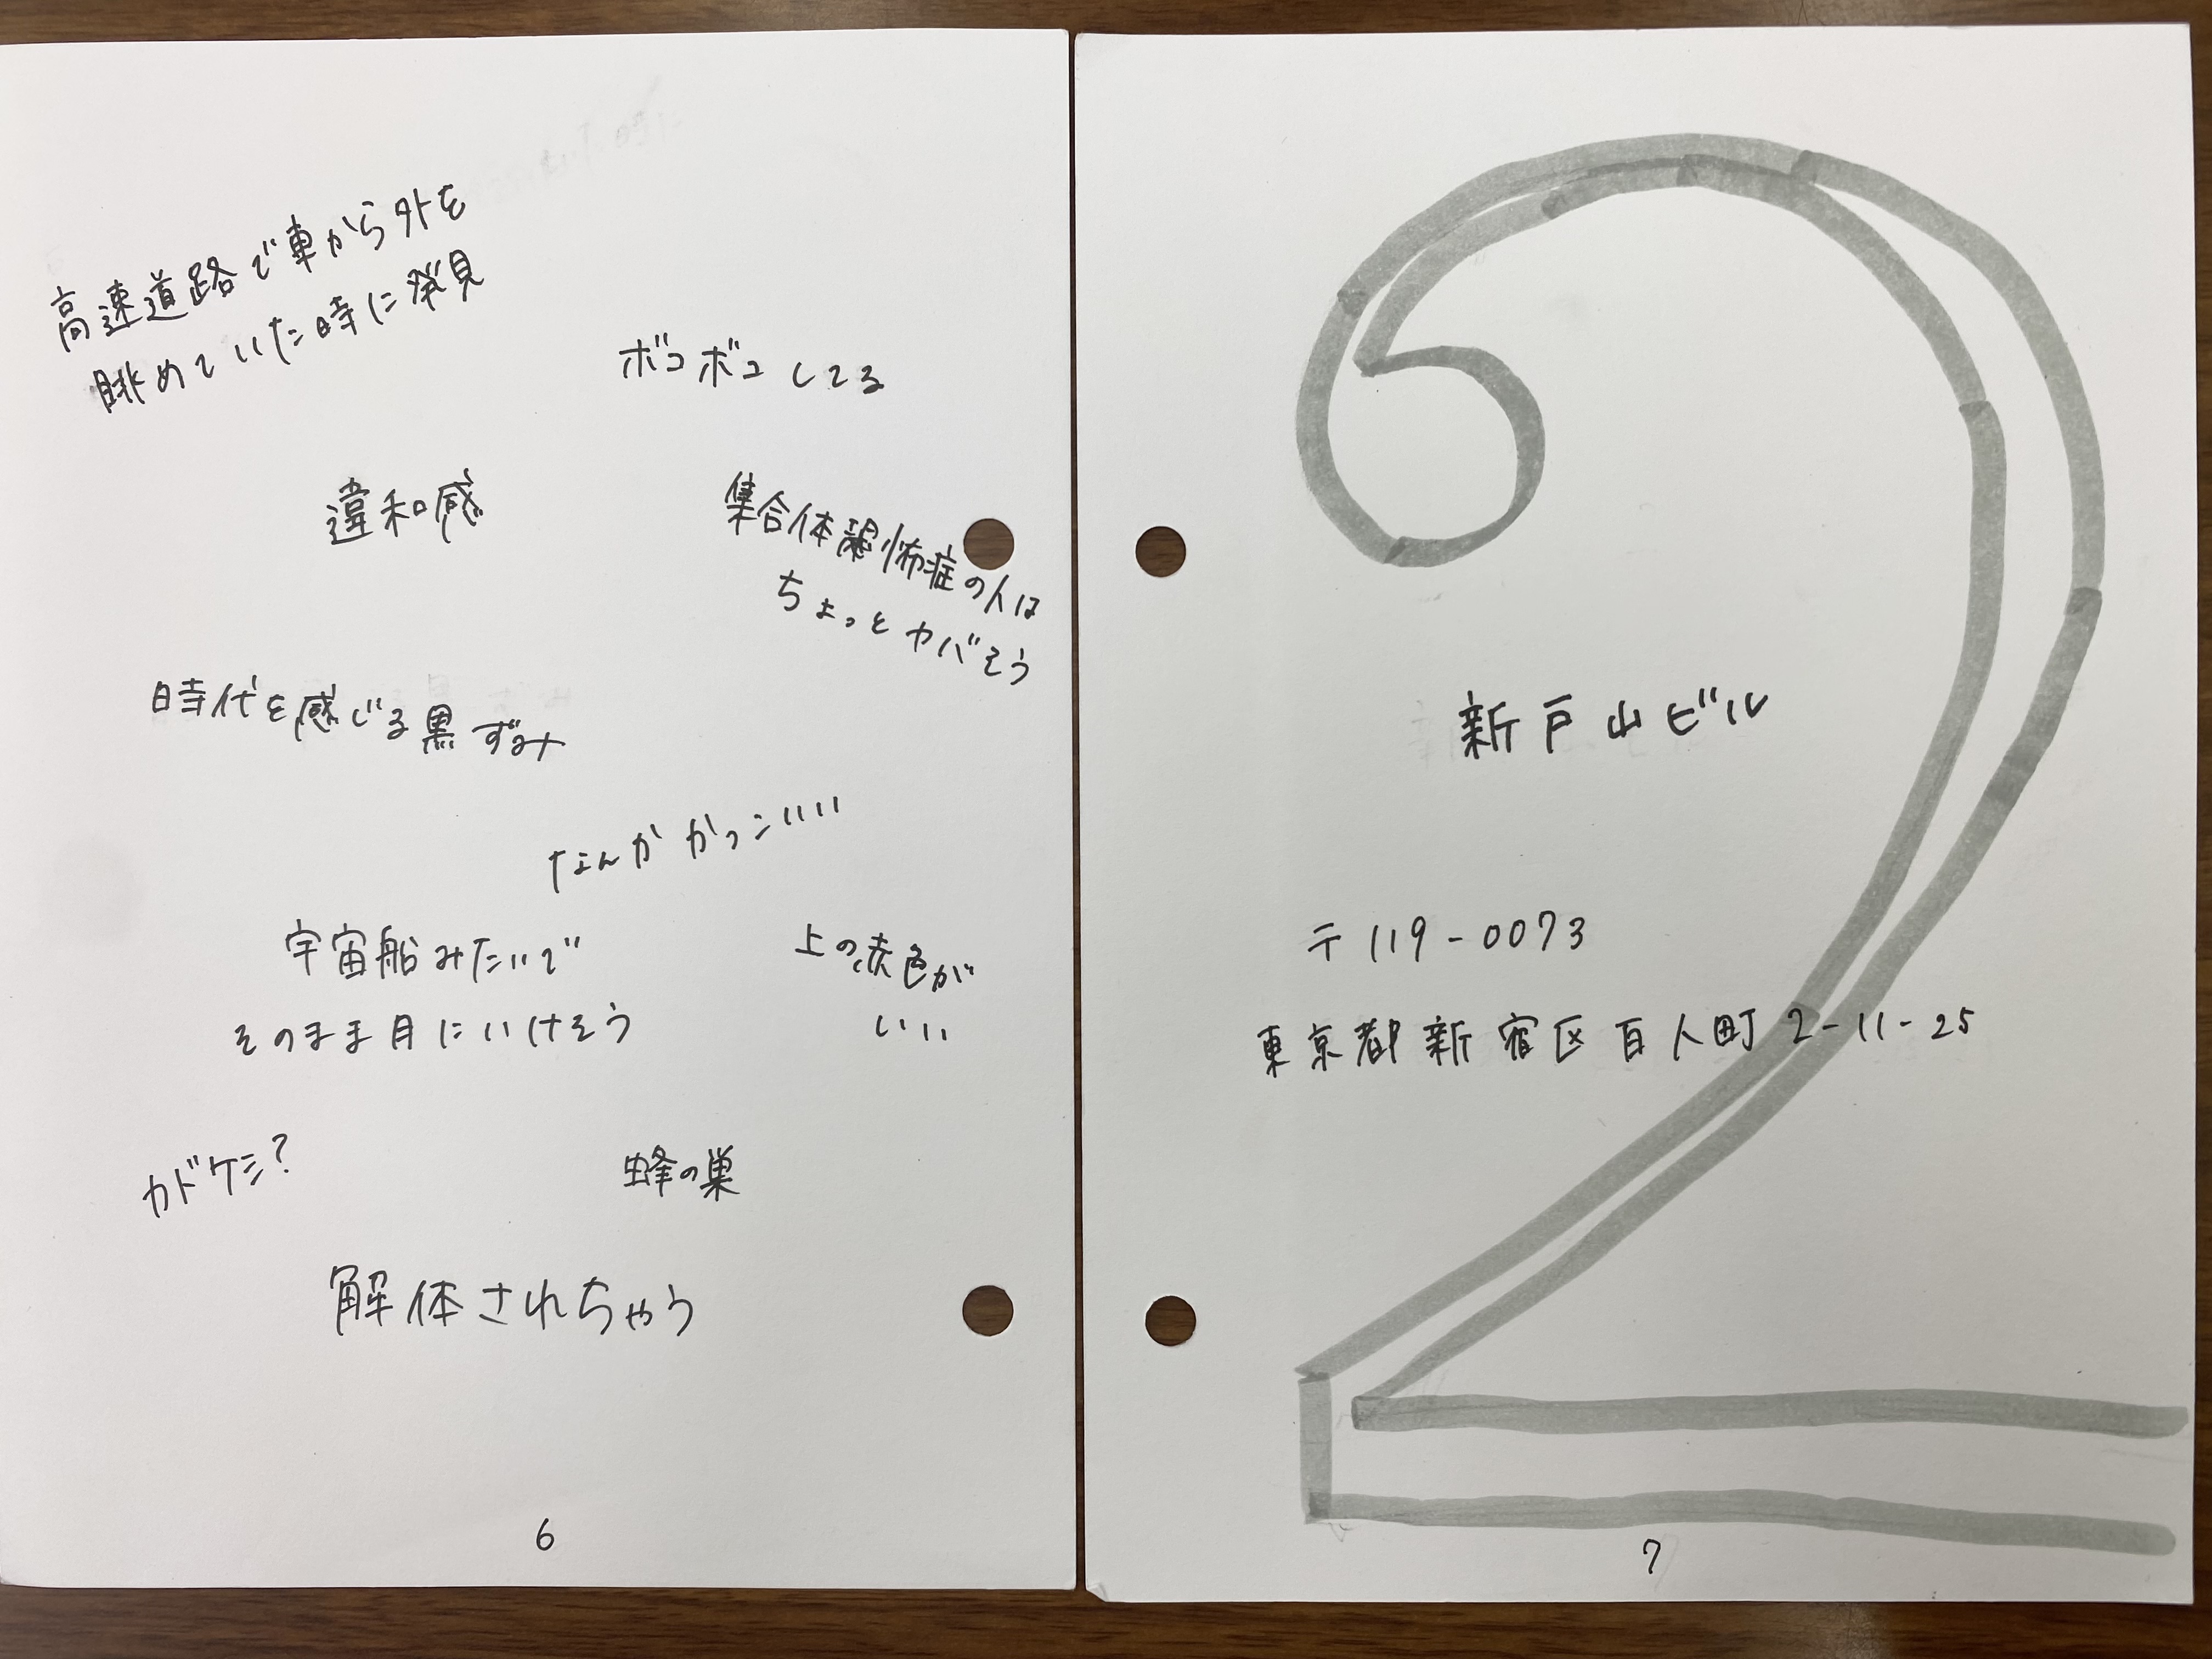 高速道路で車から外を
眺めていた時に発見
ボコボコしてる
違和感
集合体恐怖症の人は
ちょっとヤバそう
時代を感じる黒ずみ
なんかかっこいい
宇宙船みたいで
そのまま月にいけそう
上の赤色が
いい
カドケシ?
蜂の巣
解体されちゃう
6
2
新戸山ビル
〒119-0073
東京都新宿区百人町2-11-25
7